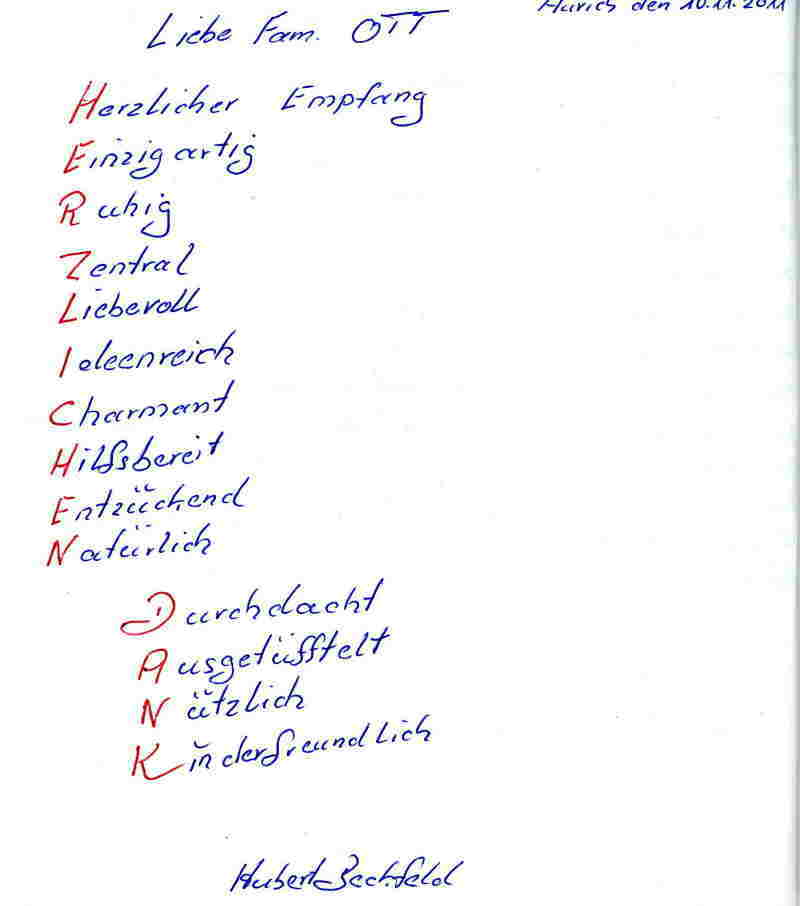 Aurich den 10.11.2011
Liebe Fam. OTT
Herzlicher Empfang
Einzigartig
Ruhig
Zentral
Liebevoll
Ideenreich
Charmant
Hilfsbereit
Entzückend
Natürlich
Durchdacht
Ausgetüfftelt
Nützlich
Kinderfreundlich
Hubert